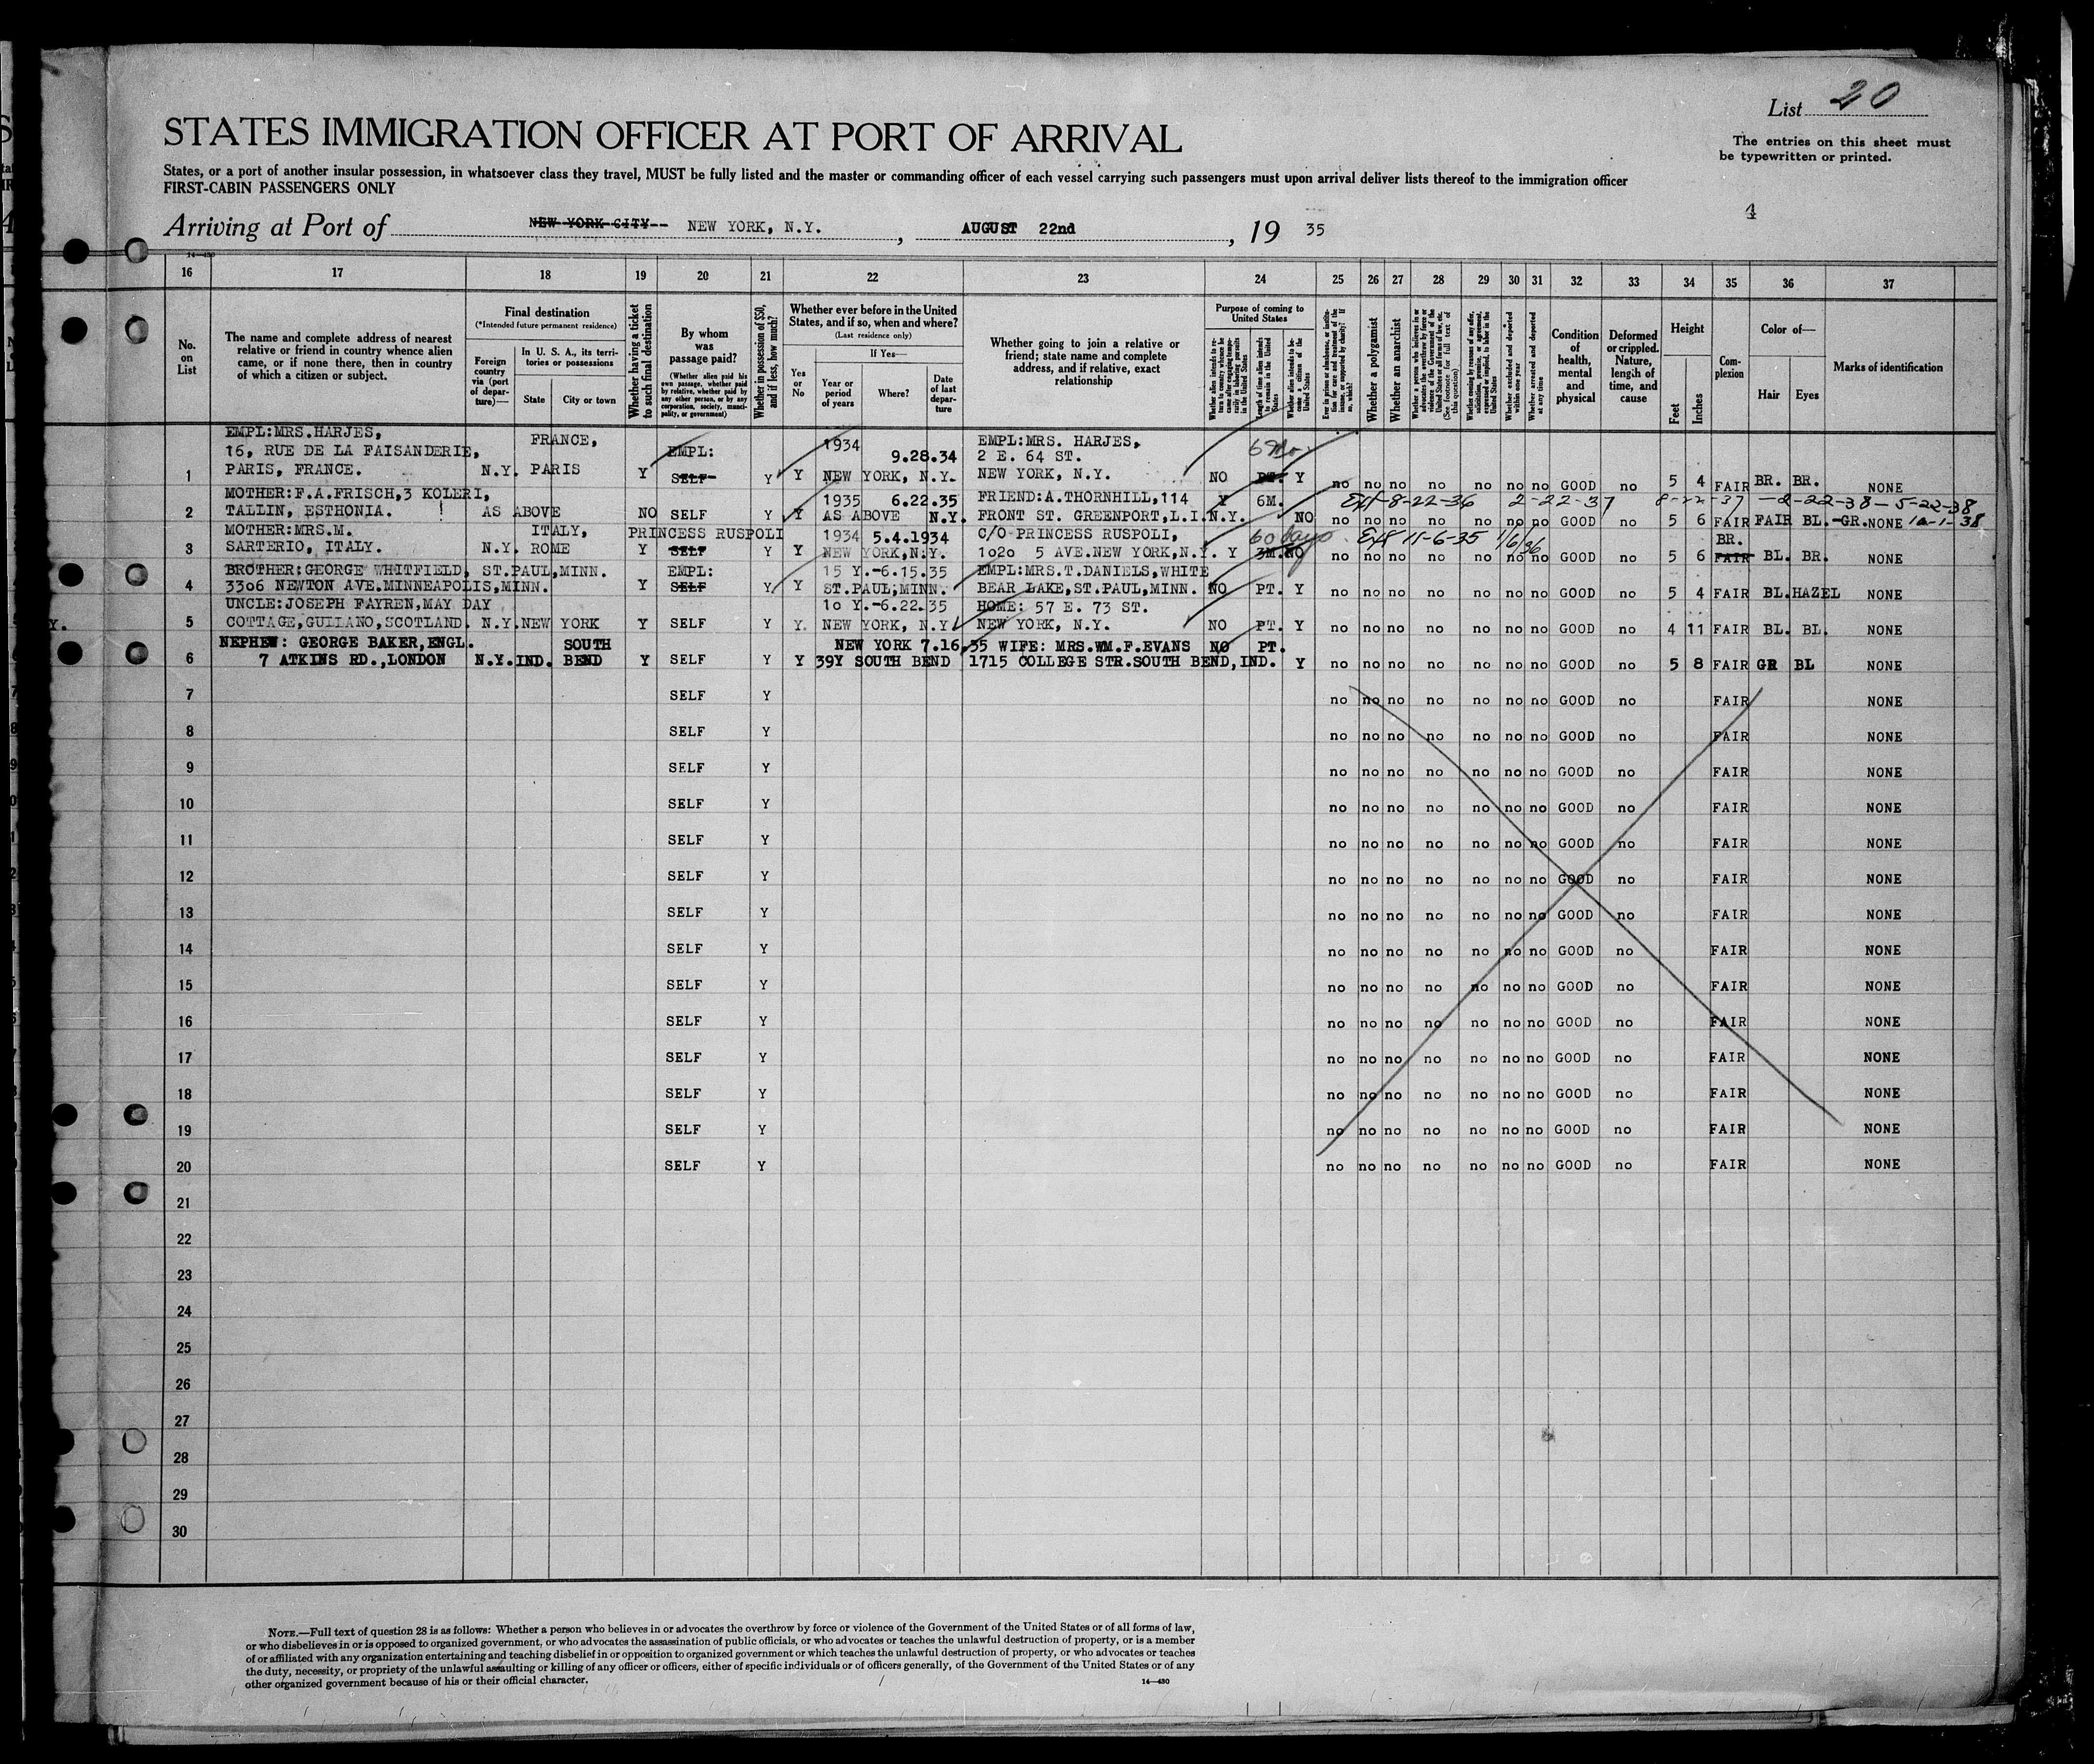 List 20
STATES IMMIGRATION OFFICER AT PORT OF ARRIVAL
The entries on this sheet must
be typewritten or printed.
States, or a port of another insular possession, in whatsoever class they travel, MUST be fully listed and the master or commanding officer of each vessel carrying such passengers must upon arrival deliver lists thereof to the immigration officer
FIRST-CABIN PASSENGERS ONLY
4
Arriving at Port of NEW YORK CITY-- NEW YORK, N.Y. , AUGUST 22nd , 19 35
14—430
16 17 18 19 20 21 22 23 24 25 26 27 28 29 30 31 32 33 34 35 36 37
No. on List
The name and complete address of nearest
relative or friend in country whence alien
came, or if none there, then in country
of which a citizen or subject.
Final destination
(*Intended future permanent residence)
Foreign country via (port of departure)—
In U. S. A., its territories or possessions
State
City or town
Whether having a ticket to such final destination
By whom was passage paid?
(Whether alien paid his own passage, whether paid by relative, whether paid by any other person, or by any corporation, society, municipality, or government)
Whether in possession of $50, and if less, how much?
Whether ever before in the United States, and if so, when and where?
(Last residence only)
Yes or No
If Yes—
Year or period of years
Where?
Date of last departure
Whether going to join a relative or
friend; state name and complete
address, and if relative, exact
relationship
Purpose of coming to United States
Whether alien intends to return to country whence he came after engaging temporarily in laboring pursuits in the United States
Length of time alien intends to remain in the United States
Whether alien intends to become a citizen of the United States
Ever in prison or almshouse, or institution for care and treatment of the insane, or supported by charity? If so, which?
Whether a polygamist
Whether an anarchist
Whether a person who believes in or advocates the overthrow by force or violence of the Government of the United States or all forms of law, etc. (See footnote for full text of this question)
Whether coming by reason of any offer, solicitation, promise, or agreement, expressed or implied, to labor in the United States
Whether excluded and deported within one year
Whether arrested and deported at any time
Condition of health, mental and physical
Deformed or crippled. Nature, length of time, and cause
Height
Feet
Inches
Complexion
Color of—
Hair
Eyes
Marks of identification
EMPL:MRS.HARJES, FRANCE, EMPL: 1934 9.28.34 EMPL:MRS. HARJES, 6 Mo
16, RUE DE LA FAISANDERIE, 2 E. 64 ST.
1 PARIS, FRANCE. N.Y. PARIS Y SELF- Y Y NEW YORK, N.Y. NEW YORK, N.Y. NO PT. Y no no no no no no no GOOD no 5 4 FAIR BR. BR. NONE
MOTHER:F.A.FRISCH,3 KOLERI, 1935 6.22.35 FRIEND:A.THORNHILL,114 Y 6M. Ext-8-22-36 2-22-37 8-22-37 -2-22-38- 5-22-38
2 TALLIN, ESTHONIA. ! AS ABOVE NO SELF Y Y AS ABOVE N.Y. FRONT ST. GREENPORT,L.I.N.Y. NO no no no no no no no GOOD no 5 6 FAIR FAIR BL.-GR. NONE 10-1-38
MOTHER:MRS.M. ITALY, PRINCESS RUSPOLI 1934 5.4.1934 C/O PRINCESS RUSPOLI, 60 days Ext 11-6-35 1/6/36 BR.
3 SARTERIO, ITALY. N.Y. ROME Y SELF Y Y NEW YORK,N.Y. 1o2o 5 AVE.NEW YORK,N.Y. Y 3M. NO no no no no no no no GOOD no 5 6 FAIR BL. BR. NONE
BROTHER:GEORGE WHITFIELD, ST.PAUL,MINN. EMPL: 15 Y.-6.15.35 EMPL:MRS.T.DANIELS,WHITE
4 33o6 NEWTON AVE.MINNEAPOLIS,MINN. Y SELF Y Y ST.PAUL,MINN. BEAR LAKE,ST.PAUL,MINN. NO PT. Y no no no no no no no GOOD no 5 4 FAIR BL.HAZEL NONE
UNCLE:JOSEPH FAYREN,MAY DAY 1o Y.-6.22.35 HOME: 57 E. 73 ST.
5 COTTAGE,GULLANO,SCOTLAND. N.Y.NEW YORK Y SELF Y Y. NEW YORK, N.Y. NEW YORK, N.Y. NO PT. Y no no no no no no no GOOD no 4 11 FAIR BL. BL. NONE
NEPHEW: GEORGE BAKER,ENGL. SOUTH NEW YORK 7.16.35 WIFE: MRS.WM.F.EVANS NO PT.
6 7 ATKINS RD.,LONDON N.Y.IND. BEND Y SELF Y Y 39Y SOUTH BEND 1715 COLLEGE STR.SOUTH BEND,IND. Y no no no no no no no GOOD no 5 8 FAIR GR BL NONE
7 SELF Y no no no no no no no GOOD no FAIR NONE
8 SELF Y no no no no no no no GOOD no FAIR NONE
9 SELF Y no no no no no no no GOOD no FAIR NONE
10 SELF Y no no no no no no no GOOD no FAIR NONE
11 SELF Y no no no no no no no GOOD no FAIR NONE
12 SELF Y no no no no no no no GOOD no FAIR NONE
13 SELF Y no no no no no no no GOOD no FAIR NONE
14 SELF Y no no no no no no no GOOD no FAIR NONE
15 SELF Y no no no no no no no GOOD no FAIR NONE
16 SELF Y no no no no no no no GOOD no FAIR NONE
17 SELF Y no no no no no no no GOOD no FAIR NONE
18 SELF Y no no no no no no no GOOD no FAIR NONE
19 SELF Y no no no no no no no GOOD no FAIR NONE
20 SELF Y no no no no no no no GOOD no FAIR NONE
21
22
23
24
25
26
27
28
29
30
NOTE.—Full text of question 28 is as follows: Whether a person who believes in or advocates the overthrow by force or violence of the Government of the United States or of all forms of law,
or who disbelieves in or is opposed to organized government, or who advocates the assassination of public officials, or who advocates or teaches the unlawful destruction of property, or is a member
of or affiliated with any organization entertaining and teaching disbelief in or opposition to organized government or which teaches the unlawful destruction of property, or who advocates or teaches
the duty, necessity, or propriety of the unlawful assaulting or killing of any officer or officers, either of specific individuals or of officers generally, of the Government of the United States or of any
other organized government because of his or their official character.
14—430